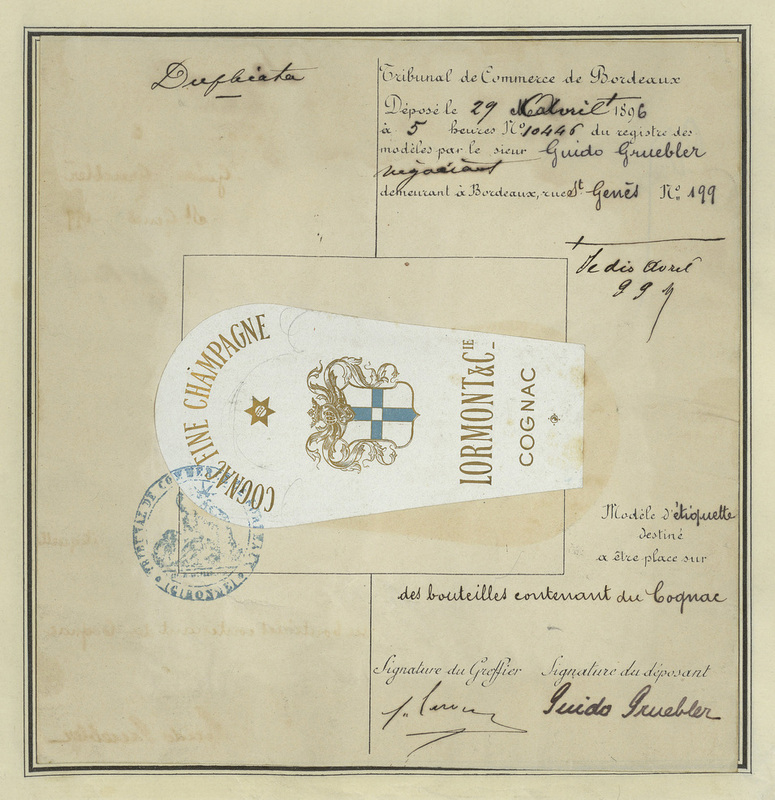 Duplicata
Tribunal de Commerce de Bordeaux
Déposé le 29 Avril 1896
à 5 heures N° 10446 du registre des
modèles par le sieur Guido Gruebler
négociant
demeurant à Bordeaux, rue St Genès N° 199
COGNAC FINE CHAMPAGNE
LORMONT & CIE
COGNAC
TRIBUNAL DE COMMERCE
(GIRONDE)
Modèle d'étiquette
destiné
a être place sur
des bouteilles contenant du Cognac
Signature du Greffier Signature du déposant
Guido Gruebler